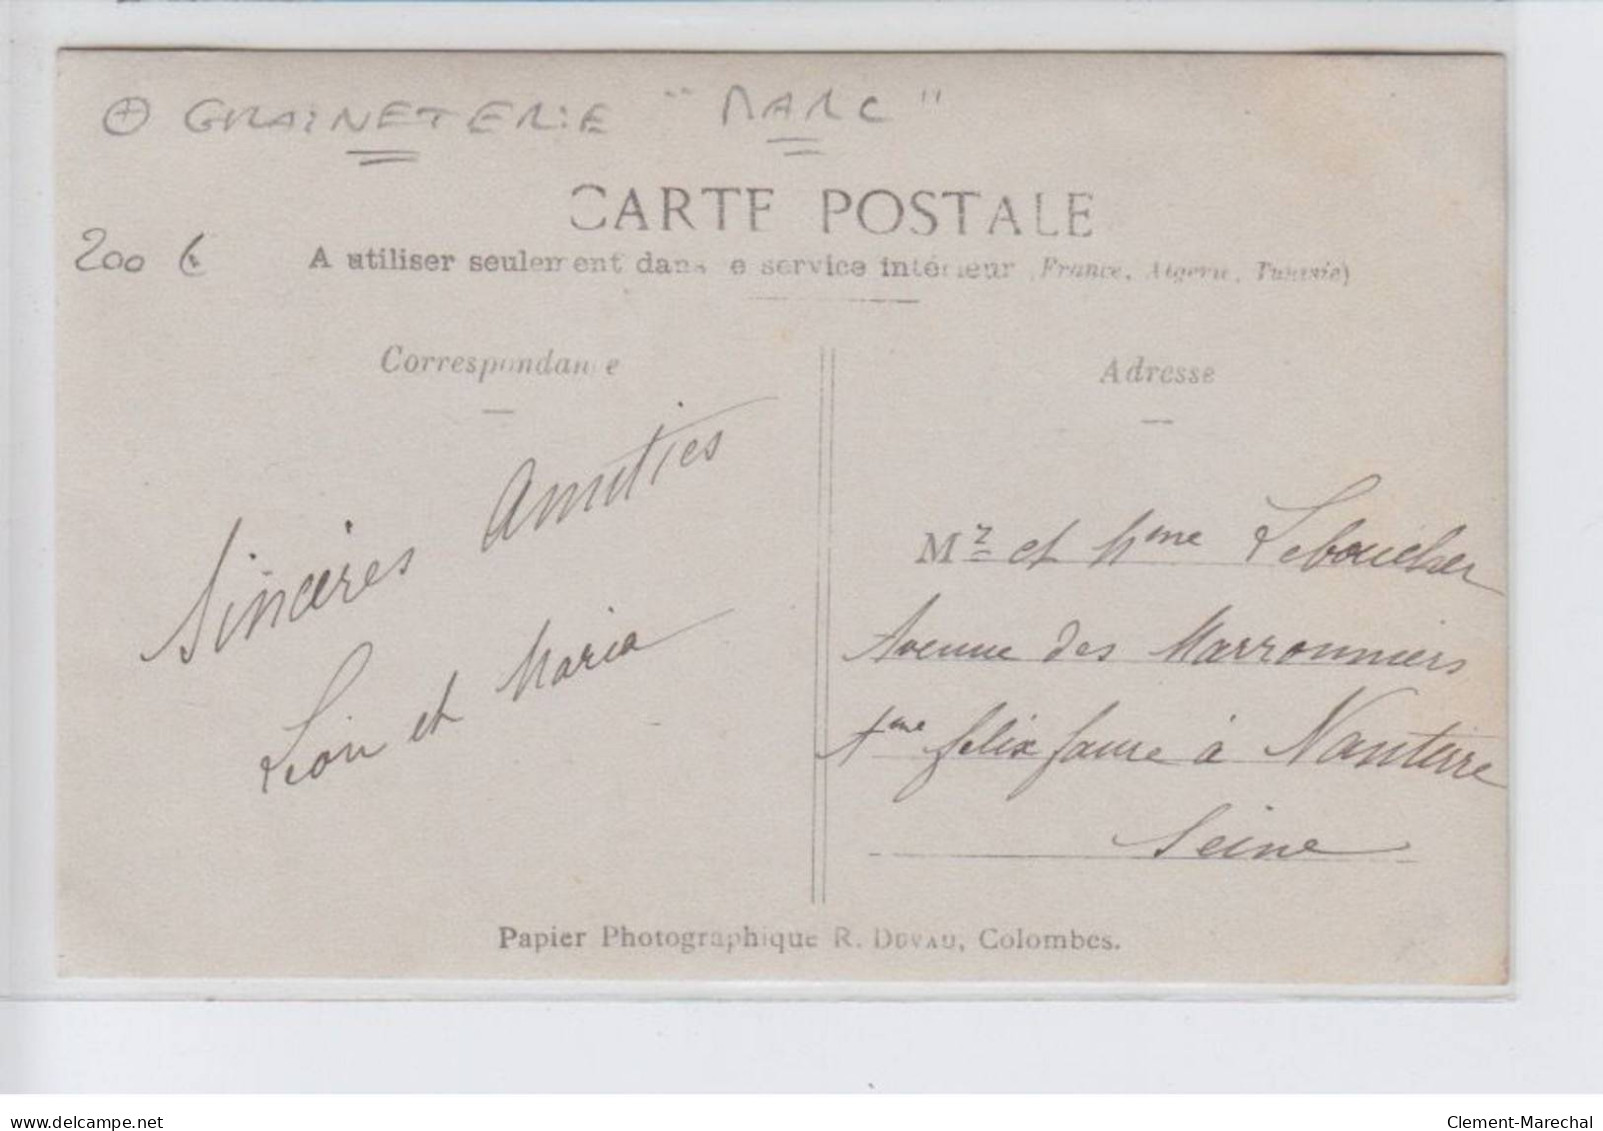 ⊕ GRAINETERIE "MARC"
CARTE POSTALE
200 €
A utiliser seulement dans le service intérieur (France, Algérie, Tunisie)
Correspondance
Adresse
Sincères Amitiés
Léon et Maria
Mr et Mme Leboucher
Avenue des Marronniers
félix faure à Nanterre
Seine
Papier Photographique R. DEVAU, Colombes.
delcampe.net
Clement-Marechal